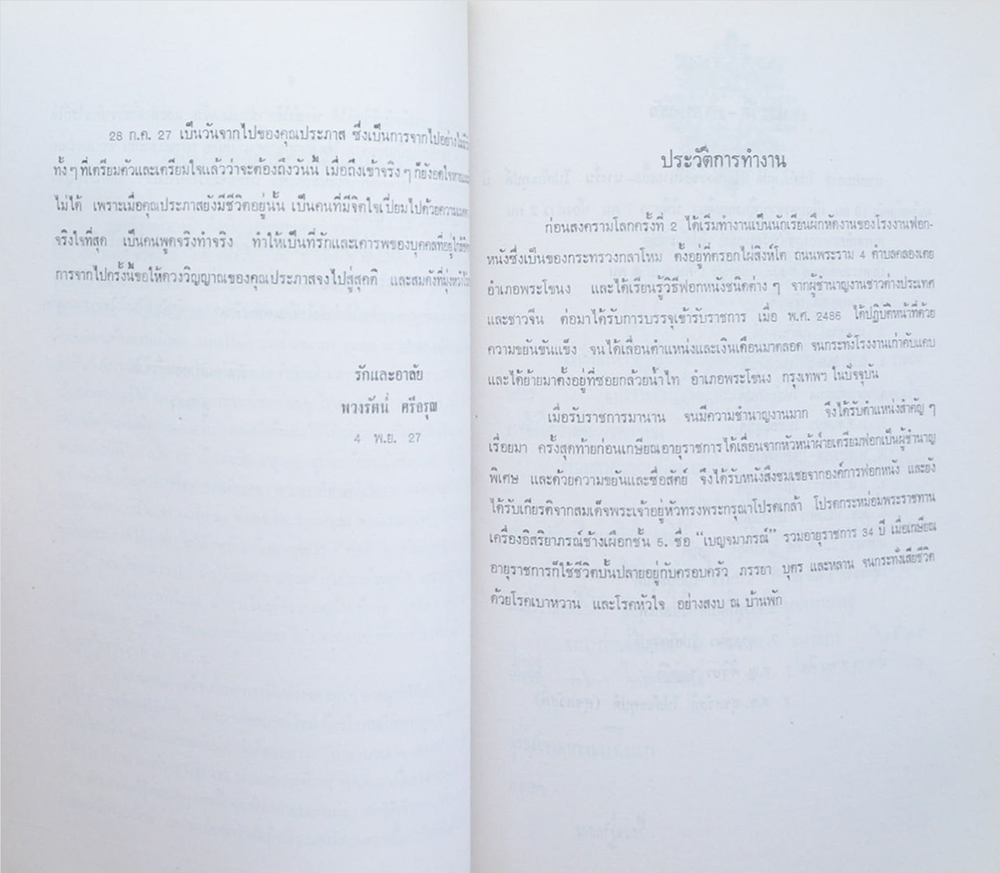 28 ก.ค. 27 เป็นวันจากไปของคุณประภาส ซึ่งเป็นการจากไปอย่าง
ทั้ง ๆ ที่เตรียมตัวและเตรียมใจแล้วว่าจะต้องถึงวันนี้ เมื่อถึงเข้าจริง ๆ ก็ยังอดใจ
ไม่ได้ เพราะเมื่อคุณประภาสยังมีชีวิตอยู่นั้น เป็นคนที่มีจิตใจเปี่ยมไปด้วยความ
จริงใจที่สุด เป็นคนพูดจริงทำจริง ทำให้เป็นที่รักและเคารพของบุคคลที่อยู่
การจากไปครั้งนี้ขอให้ดวงวิญญาณของคุณประภาสจงไปสู่สุคติ และสมดังที่มุ่งหวัง
รักและอาลัย
พวงรัตน์ ศรีอรุณ
4 พ.ย. 27
ประวัติการทำงาน
ก่อนสงครามโลกครั้งที่ 2 ได้เริ่มทำงานเป็นนักเรียนฝึกหัดงานของโรงงานฟอก-
หนังซึ่งเป็นของกระทรวงกลาโหม ตั้งอยู่ที่ตรอกไผ่สิงห์โต ถนนพระราม 4 ตำบลคลองเตย
อำเภอพระโขนง และได้เรียนรู้วิธีฟอกหนังชนิดต่าง ๆ จากผู้ชำนาญงานชาวต่างประเทศ
และชาวจีน ต่อมาได้รับการบรรจุเข้ารับราชการ เมื่อ พ.ศ. 2486 ได้ปฏิบัติหน้าที่ด้วย
ความขยันขันแข็ง จนได้เลื่อนตำแหน่งและเงินเดือนมาตลอด จนกระทั่งโรงงานเก่าคับแคบ
และได้ย้ายมาตั้งอยู่ที่ซอยกล้วยน้ำไท อำเภอพระโขนง กรุงเทพฯ ในปัจจุบัน
เมื่อรับราชการมานาน จนมีความชำนาญงานมาก จึงได้รับตำแหน่งสำคัญ ๆ
เรื่อยมา ครั้งสุดท้ายก่อนเกษียณอายุราชการได้เลื่อนจากหัวหน้าฝ่ายเตรียมฟอกเป็นผู้ชำนาญ
พิเศษ และด้วยความขยันและซื่อสัตย์ จึงได้รับหนังสือชมเชยจากองค์การฟอกหนัง และยัง
ได้รับเกียรติจากสมเด็จพระเจ้าอยู่หัวทรงพระกรุณาโปรดเกล้า โปรดกระหม่อมพระราชทาน
เครื่องอิสริยาภรณ์ช้างเผือกชั้น 5. ชื่อ "เบญจมาภรณ์" รวมอายุราชการ 34 ปี เมื่อเกษียณ
อายุราชการก็ใช้ชีวิตบั้นปลายอยู่กับครอบครัว ภรรยา บุตร และหลาน จนกระทั่งเสียชีวิต
ด้วยโรคเบาหวาน และโรคหัวใจ อย่างสงบ ณ บ้านพัก